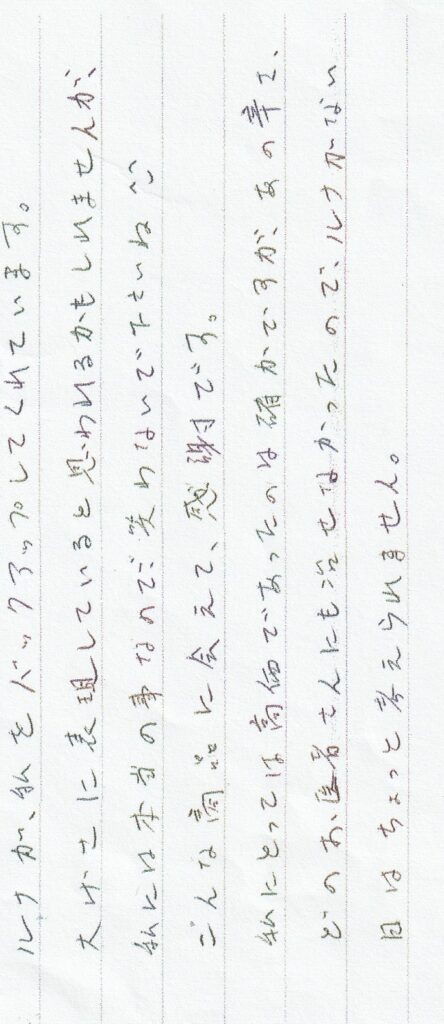 ルナが、私をバックアップしてくれています。
大げさに表現していると思われるかもしれませんが、
私には本当の事なので笑わないで下さいね^^
こんな商品に会えて、感謝です。
私にとっては高価であったのは確かですが、あの辛く、
どのお医者さんにも治せなかったので、ルナがない
日はちょっと考えられません。